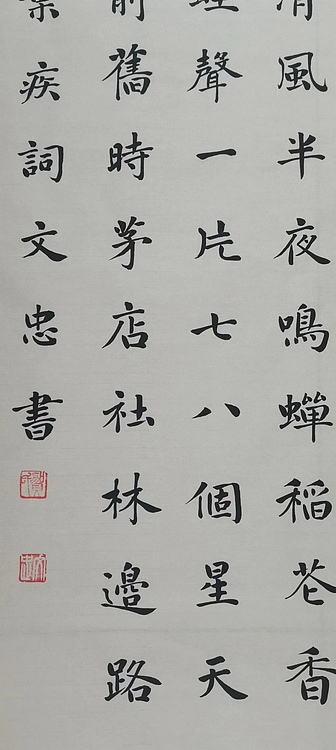 風半夜鳴蟬稻花香
聲一片七八個星天
前舊時茅店社林邊路
疾詞文忠書